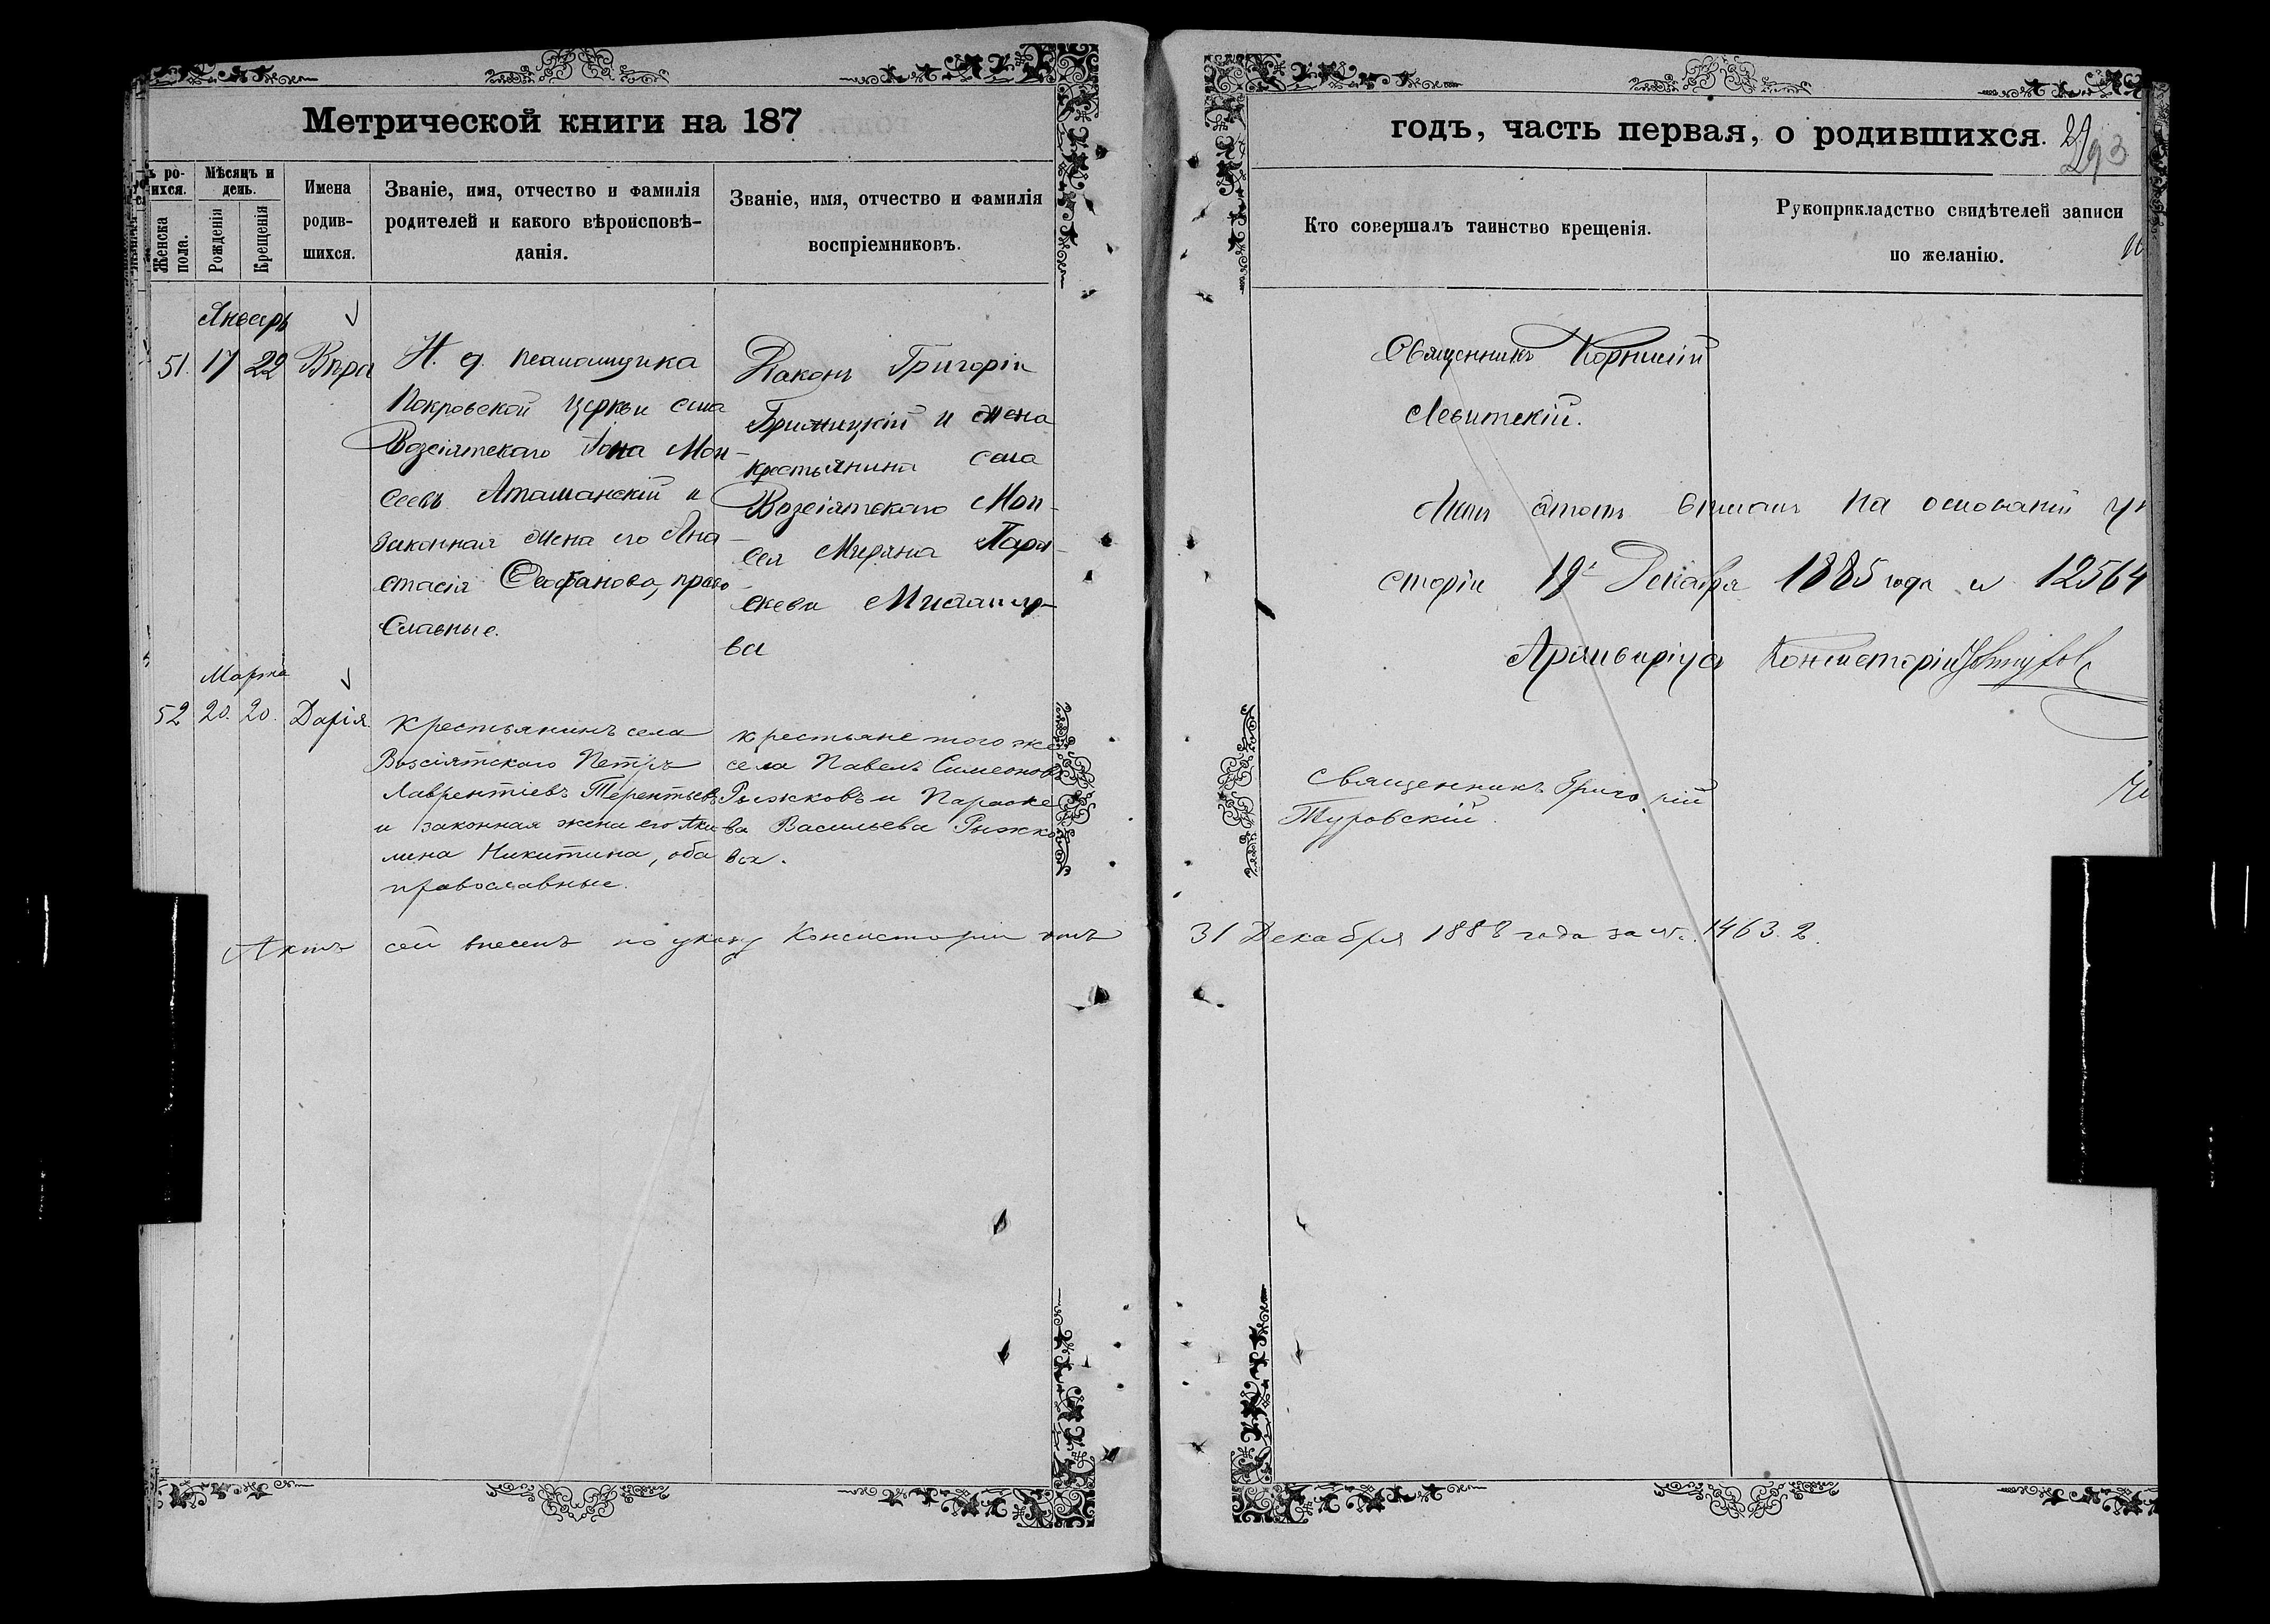 Метрической книги на 187
годъ, часть первая, о родившихся.
293
ъ ро-
ихся.
Женска
пола.
Мѣсяцъ и
день.
Рожденія
Крещенія
Имена
родив-
шихся.
Званіе, имя, отчество и фамилія
родителей и какого вѣроисповѣ-
данія.
Званіе, имя, отчество и фамилія
воспріемниковъ.
Кто совершалъ таинство крещенія.
Рукоприкладство свидѣтелей записи
по желанію.
Январь
51. 17 22 Вѣра
Н. д. псаломщика
Покровской церкви села
Возсіятскаго Іона Мои-
сеевъ Аташанскій и
законная жена его Ана-
стасія Феофанова, право
славные.
Діаконъ Григорій
и жена
крестьянина села
Возсіятскаго Мои-
сея Пара-
скева
ва
Священникъ Корнилій
Левитскій.
Актъ этотъ вписанъ на основаніи ук
сторіи 19 Декабря 1885 года № 12564
Архиваріусъ Консисторіи
Марта
52 20. 20. Дарія
крестьянинъ села
Возсіятскаго Петръ
Лаврентіевъ Терентьевъ
и законная жена его Аки
лина Никитина, оба
православные.
крестьяне того же
села Павелъ Симеоновъ
Рыжковъ и Параске
ва Васильева Рыжко
ва.
Священникъ Григорій
Туровскій.
Актъ сей внесенъ по указу Консисторіи отъ 31 Декабря 1888 года за №. 14632.